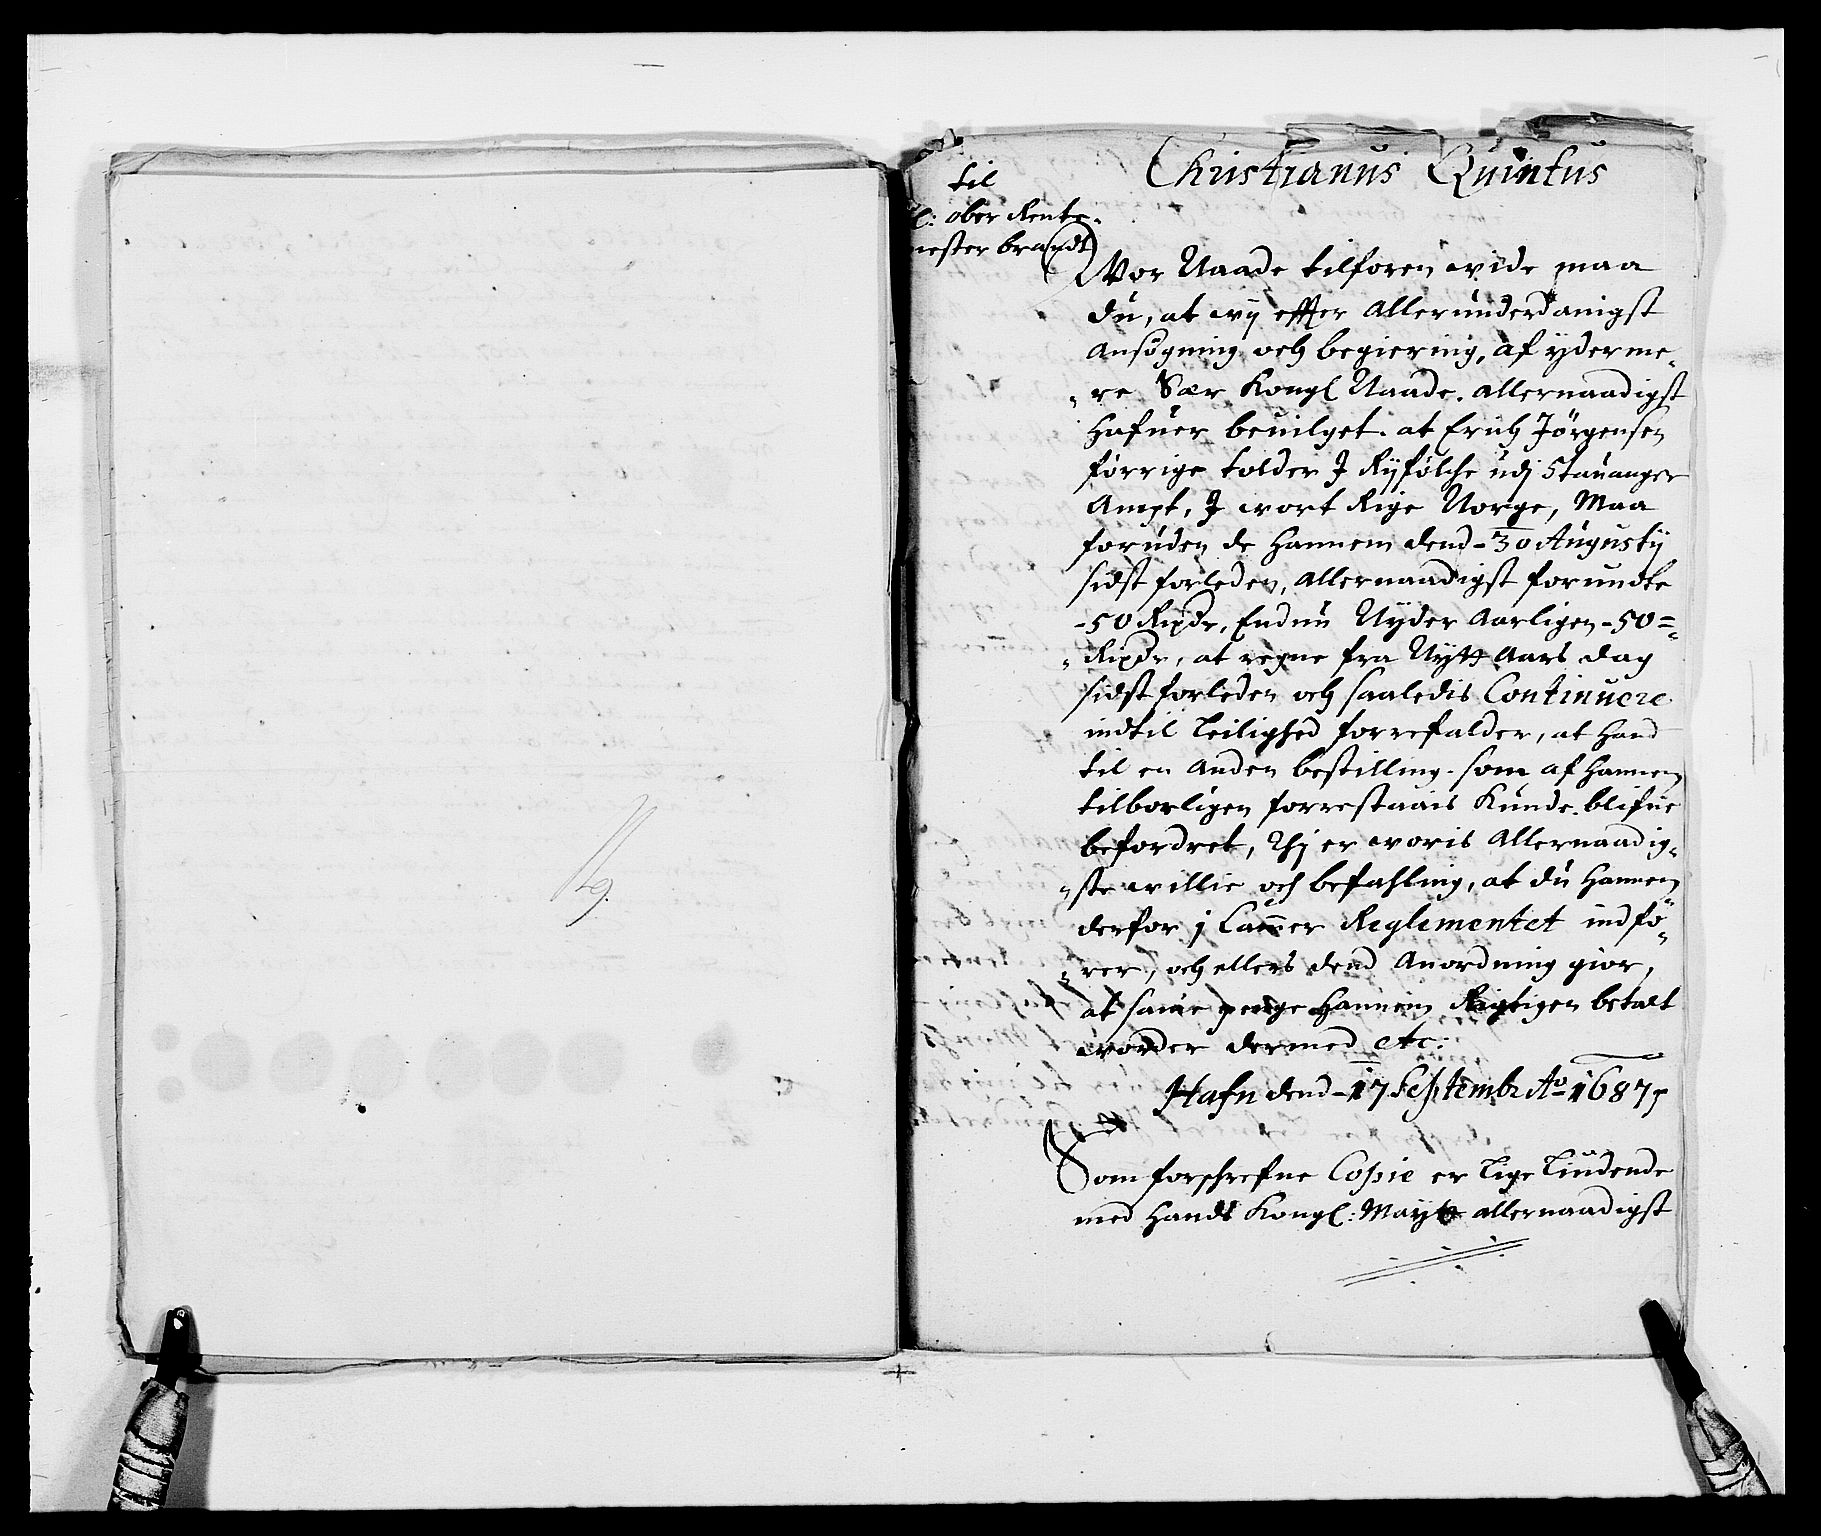 Christianus Quintus
til
l: ober Rente-
mester brandt
Wor Naade tilforen, wide maa
du, at wij effter Allerunderdanigst
Ansøgning och begiering, af yderme-
re Sær Kongl Naade. allernaadigst
hafuer beuilget. at Erich Jørgensen
forrige tolder J Ryfølche udj Stauanger
Ampt, J wort Rige Norge, Maa
foruden de hannem dend - 30 Augustij
sidst forleden, Allernaadigst forundte
- 50 Rixdr, Endnu Nyder Aarligen - 50 =
Rixdr, at regne fra Nytt Aars dag
sidst forleden och saaledis Continuere
indtil Leilighed forrefalder, at hand
til en Anden bestilling. som af hannem
tilbørligen forrestaais Kunde. blifue
befordret, Thj er woris Allernaadig-
ste willie och befahling, at du hannem
derfor j Camer Reglementet indfø-
rer, och ellers dend Anordning giør,
at same penge hannem Rigtigen betalt
worder dermed etc:
Hafn dend - 17 Septembr Ao 1687,
Som forschrefne Copie er lige liudende
med hands Kongl: Maytt allernaadigst
19.